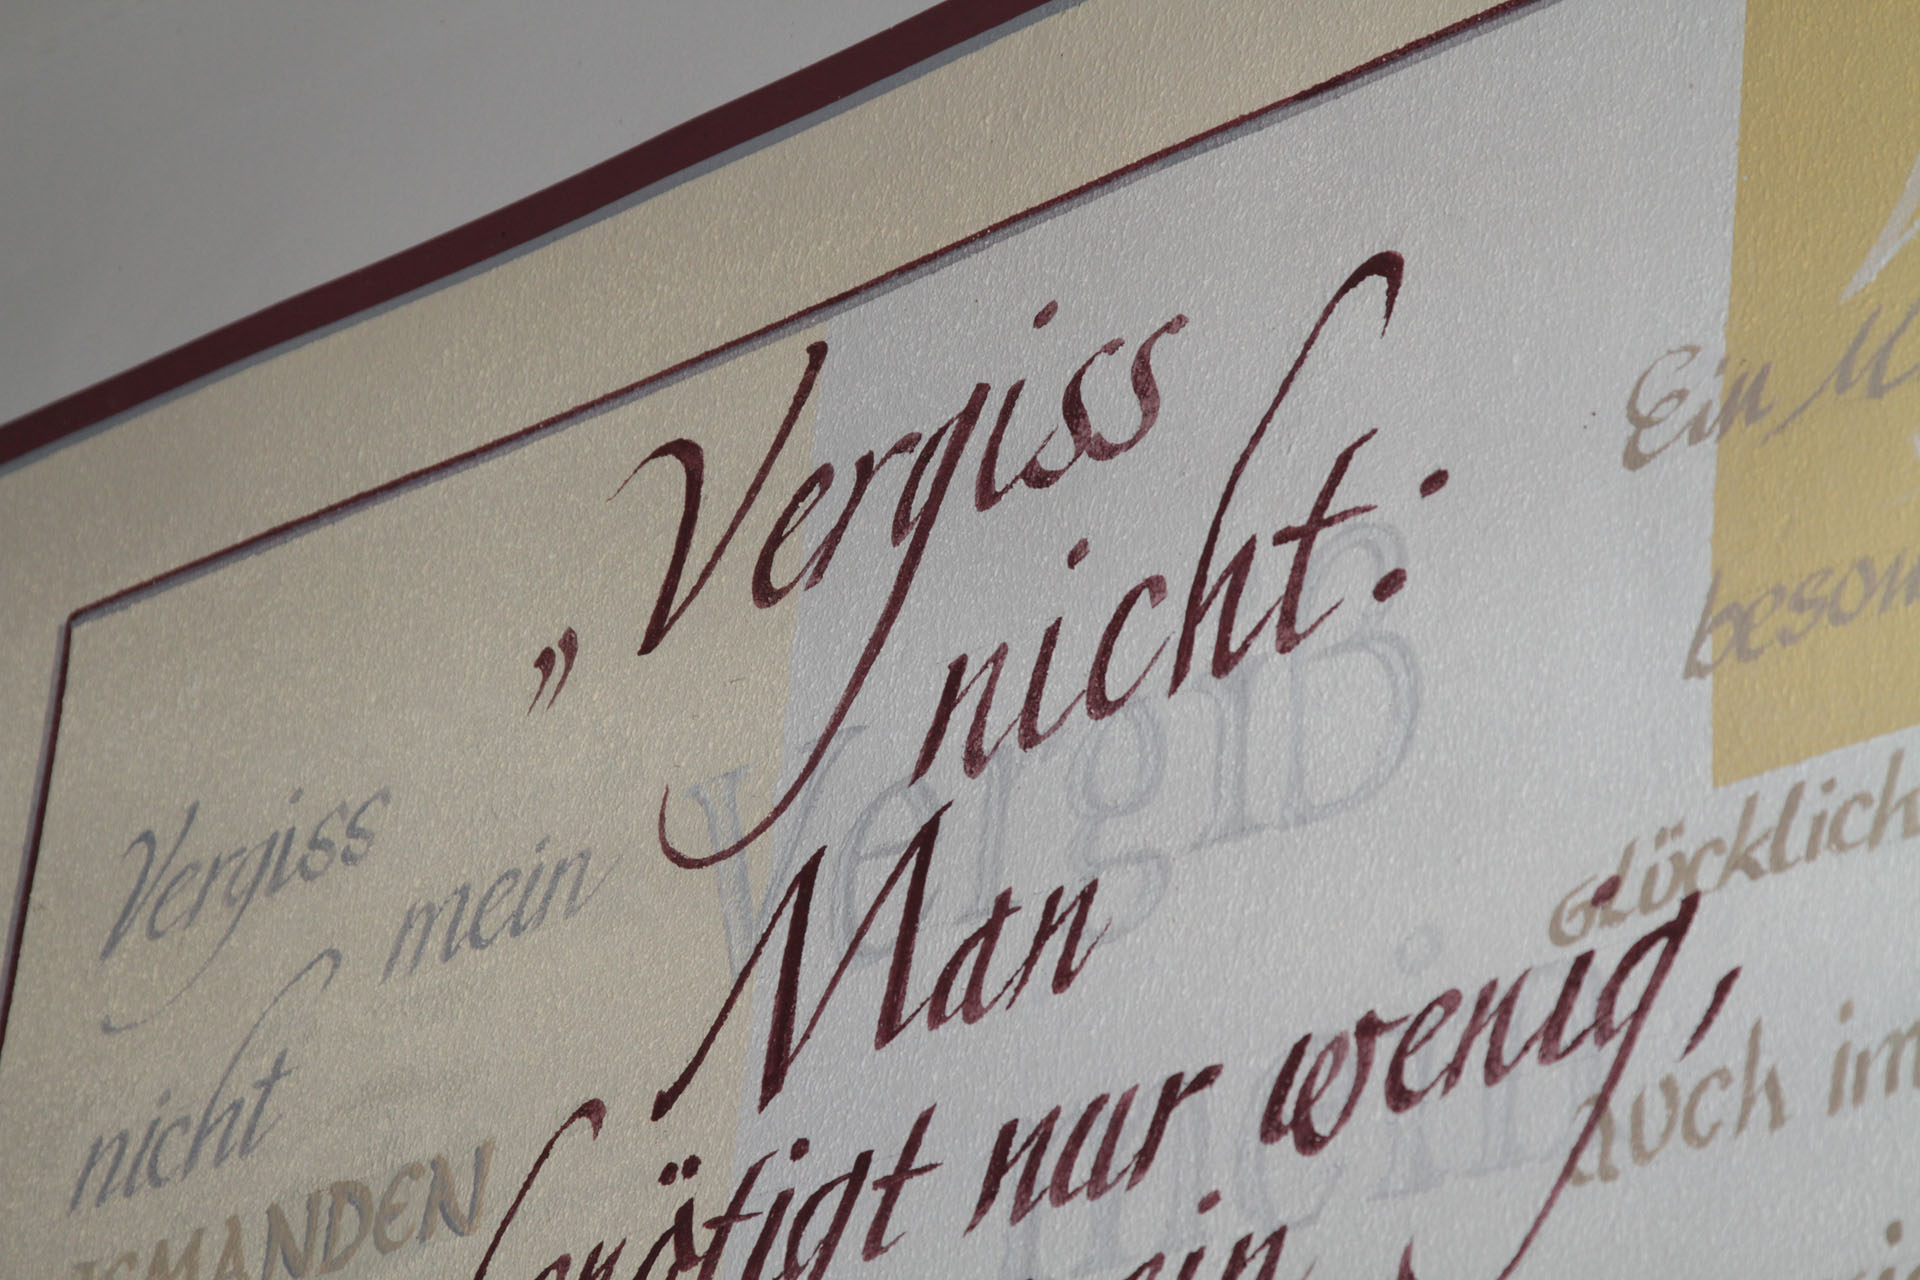 „Vergiss
nicht:
Man
benötigt nur wenig,
Vergiss
mein
nicht
Vergiß
mein
Ein
Glücklich
auch im